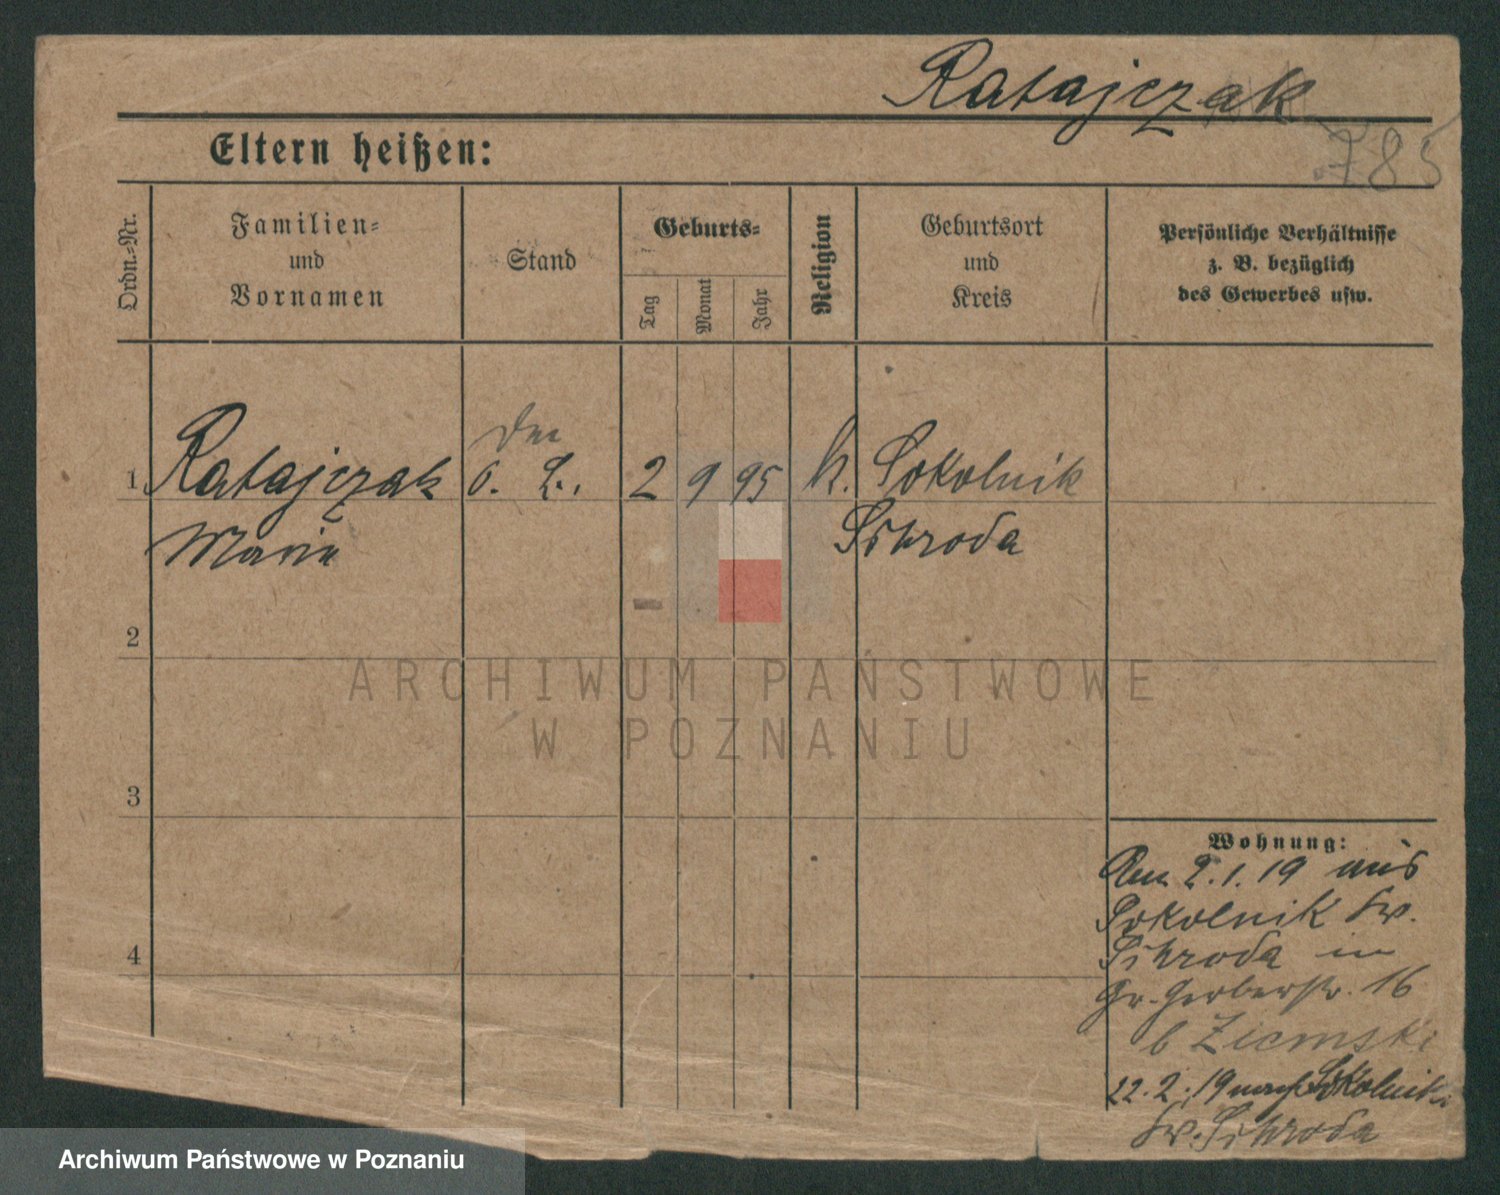 Ratajczak
785
Eltern heißen:
Ordn.-Nr.
Familien-
und
Vornamen
Stand
Geburts-
Tag
Monat
Jahr
Religion
Geburtsort
und
Kreis
Persönliche Verhältnisse
z. B. bezüglich
des Gewerbes usw.
1 Ratajczak 2 9 95 k. Sokolnik
Maria Schroda
2
ARCHIWUM PAŃSTWOWE
W POZNANIU
3
Wohnung:
Am 2.1.19 aus
Sokolnik Kr.
4
Schroda in
Gr. Gerberstr. 16
b Ziemski
22.2.19 nach Sokolnik
Kr. Schroda
Archiwum Państwowe w Poznaniu